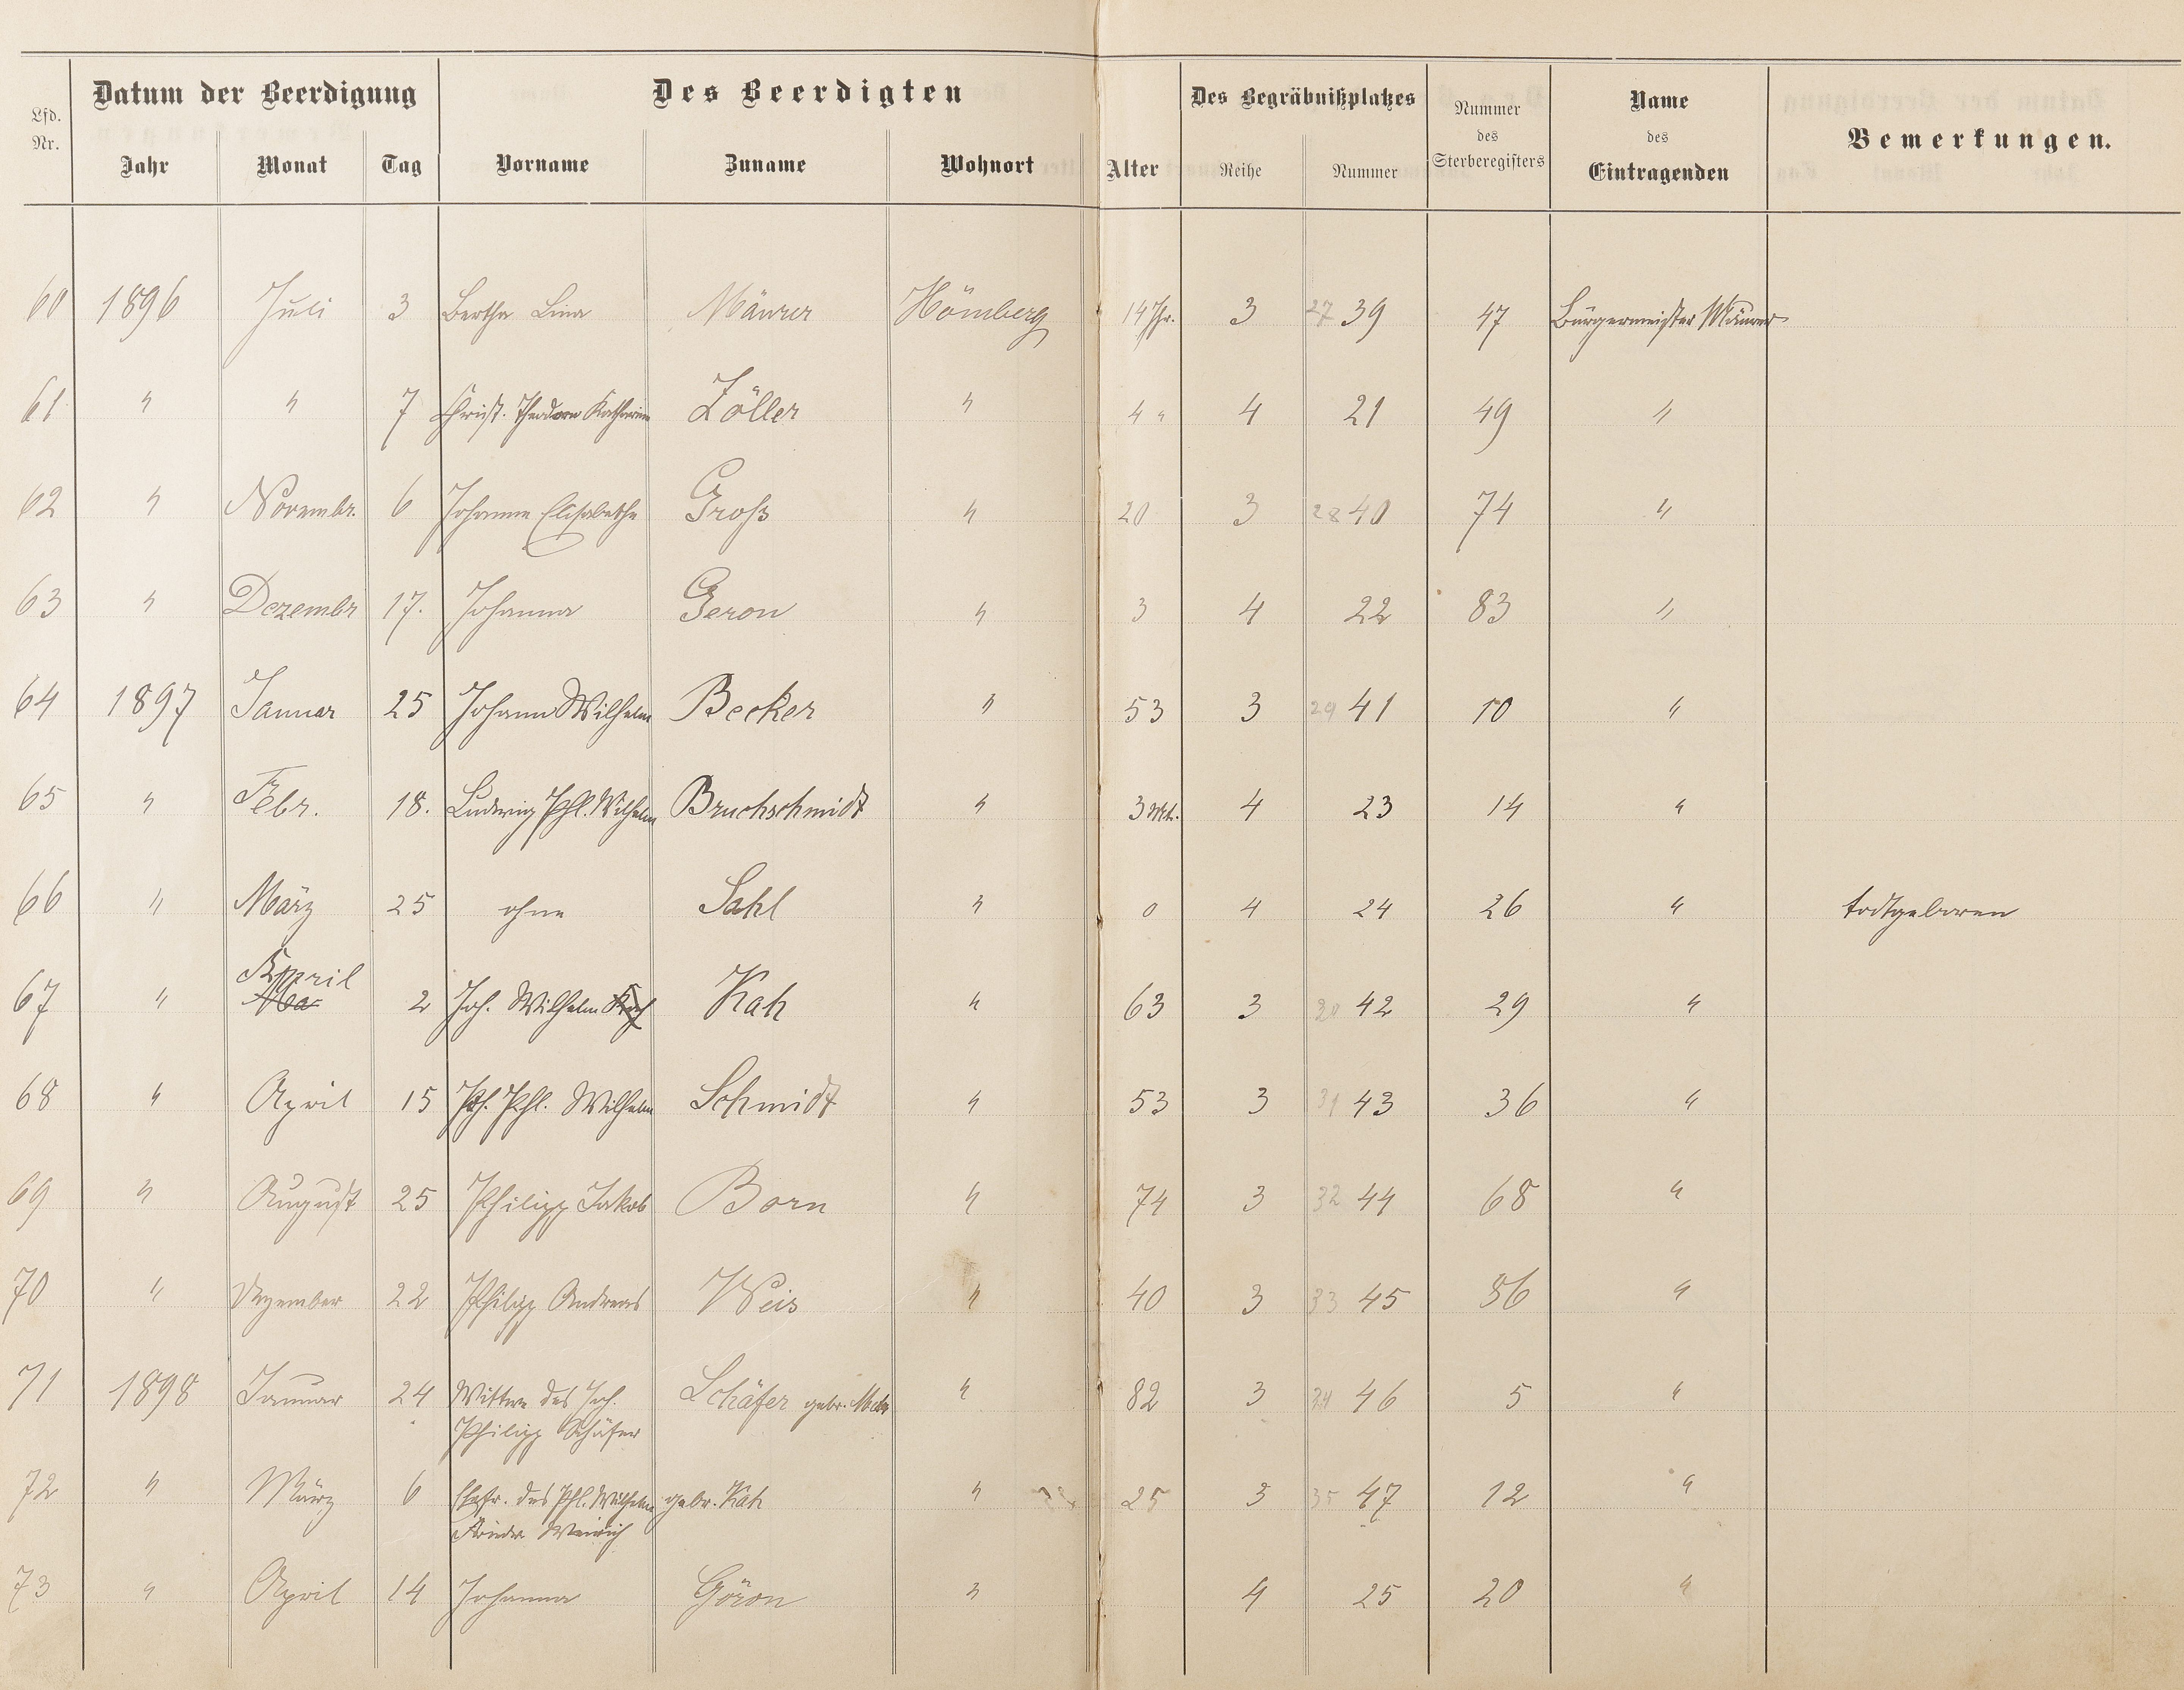 Lfd. Nr. Datum der Beerdigung Des Beerdigten Alter Des Begräbnißplatzes Nummer des Sterberegisters Name des Eintragenden Bemerkungen.
Jahr Monat Tag Vorname Zuname Wohnort Reihe Nummer
60 1896 Juli 3 Bertha Lina Mäurer Hömberg 14 Jhr. 3 27 39 47 Bürgermeister Mäurer
61 " " 7 Christ. Theodore Katharine Zöller " 4 " 4 21 49 "
62 " Novembr. 6 Johanne Elisabethe Groß " 20 3 28 40 74 "
63 " Dezembr 17. Johanna Geron " 3 4 22 83 "
64 1897 Januar 25 Johann Wilhelm Becker " 53 3 29 41 10 "
65 " Febr. 18. Ludwig Phl. Wilhelm Bruchschmidt " 3 Mt. 4 23 14 "
66 " März 25 ohne Sahl " 0 4 24 26 " todtgeboren
April
67 " Ma 2 Joh. Wilhelm Kah " 63 3 30 42 29 "
68 " April 15 Phl. Wilhelm Schmidt " 53 3 31 43 36 "
69 " August 25 Philipp Jakob Born " 74 3 32 44 68 "
70 " Dezember 22 Philipp Andreas Weis " 40 3 33 45 86 "
71 1898 Januar 24 Wittwe des Joh. Schäfer gebr. " 82 3 34 46 5 "
Philipp Schäfer
72 " März 6 Ehefr. des Phl. Wilhelm gebr. Kah " 25 3 35 47 12 "
Weinrich
73 " April 14 Johanna Göron " 4 25 20 "